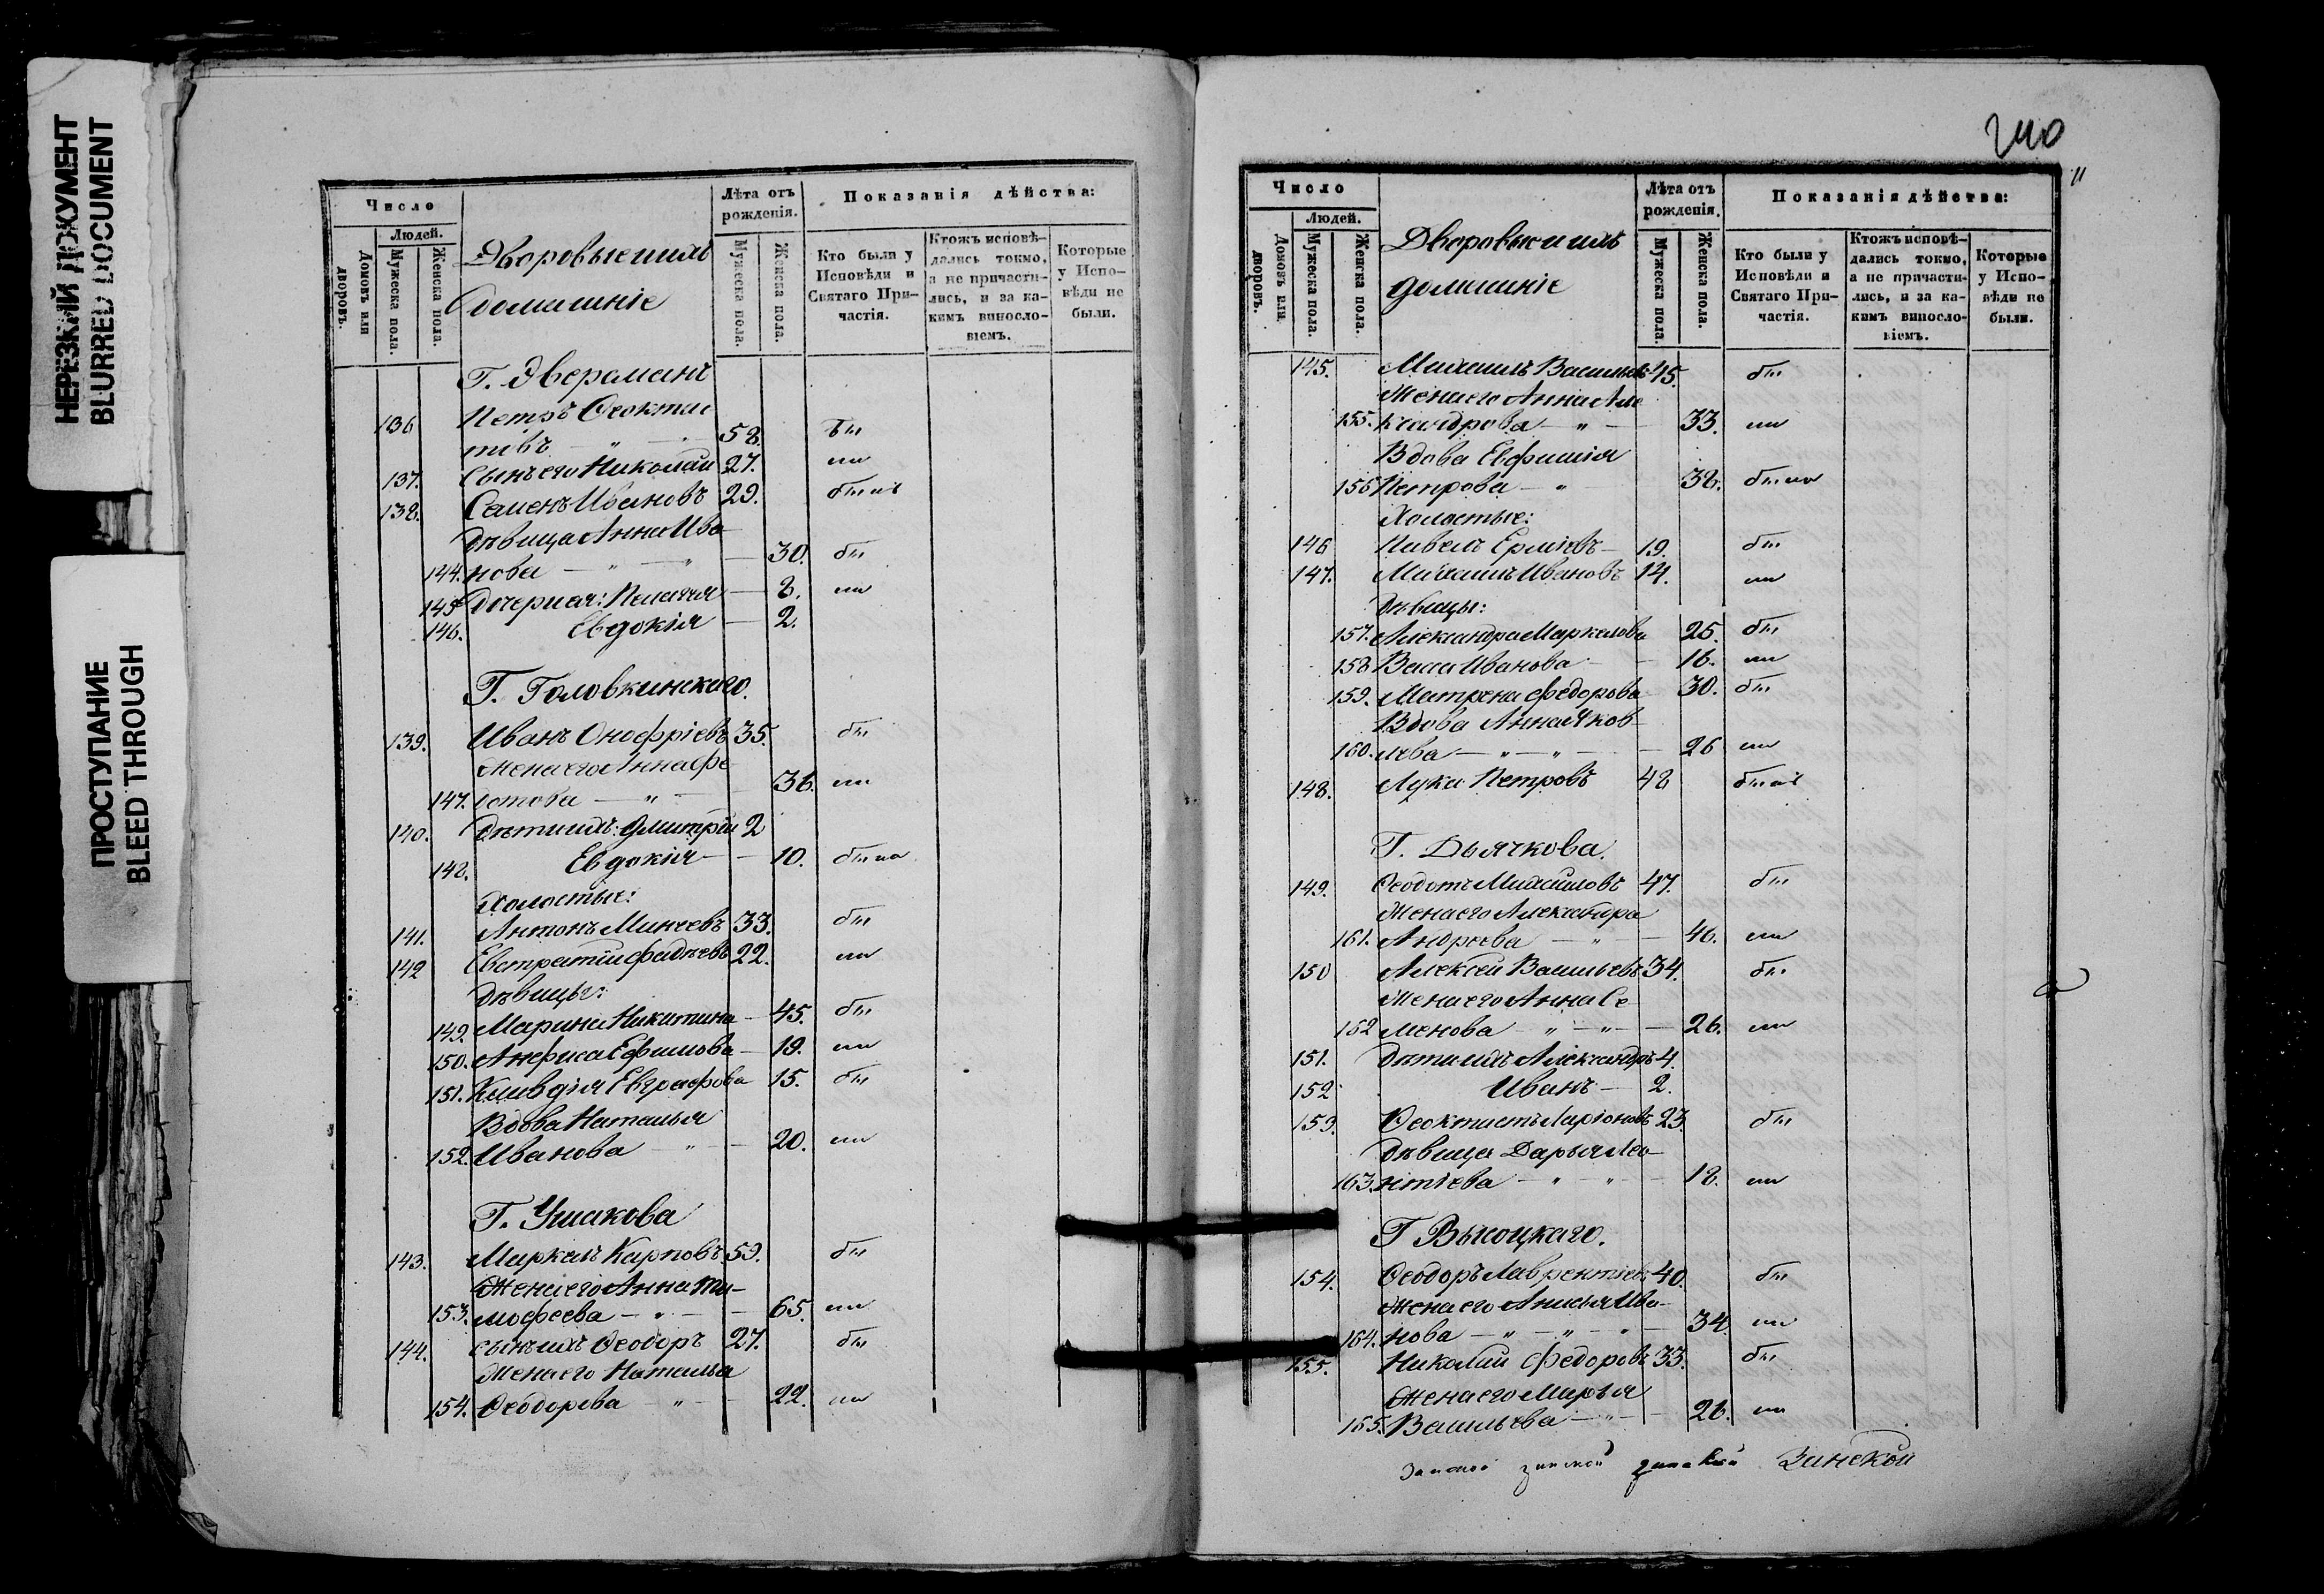 НЕРЕЗКИЙ ДОКУМЕНТ
BLURRED DOCUMENT
ПРОСТУПАНИЕ
BLEED THROUGH
Число
Людей.
Домовъ или дворовъ.
Мужеска пола.
Женска пола.
Дворовые и ихъ
домашніе
Лѣта отъ рожденія.
Мужеска пола.
Женска пола.
Показанія дѣйства:
Кто были у Исповѣди и Святаго Причастія.
Ктожъ исповѣ-
дались токмо,
а не причасти-
лись, и за ка-
кимъ виносло-
віемъ.
Которые
у Испо-
вѣди не
были.
Г. Эверсманъ
136 Петръ Ѳеоктис
товъ — " — 58.
137. Сынъ его Николай 27.
138. Семенъ Ивановъ 29.
Дѣвица Анна Ива
144. нова — " — " — 30.
145 Дочери ея: Пелагея — 8.
146. Евдокія — 2.
Г. Головкинскаго.
139. Иванъ Онофріевъ 35.
Жена его Анна Фе
147. — " — 36.
140. Дѣти ихъ: Дмитрій 2
148. Евдокія — 10.
Холостые:
141. Антонъ Минеевъ 33.
142 Евстратій Фадѣевъ 22.
Дѣвицы:
149. Марина Никитина — 45.
150. Анфиса Ефимова — 19.
151. Клавдія Евграфова 15.
Вдова Наталья
152. Иванова " — 20.
Г. Ушакова
143. Маркелъ Карповъ 59.
Жена его Анна Ти-
153. мофеева — " — 65.
144. Сынъ ихъ Ѳеодоръ 27.
Жена его Наталья
154. Ѳеодорова — " — 22.
240
Число
Людей.
Домовъ или дворовъ.
Мужеска пола.
Женска пола.
Дворовые и ихъ
домашніе
Лѣта отъ рожденія.
Мужеска пола.
Женска пола.
Показанія дѣйства:
Кто были у
Исповѣди и
Святаго При-
частія.
Ктожъ исповѣ-
дались токмо,
а не причасти-
лись, и за ка-
кимъ виносло-
віемъ.
Которые
у Испо-
вѣди не
были.
145. Михаилъ Васильевъ 45.
Жена его Анна Але
155. ксандрова — " — 33.
Вдова Евфимія
156 Петрова — " 38.
Холостые:
146 Павелъ Ермиевъ — 19.
147. Михаилъ Ивановъ 14.
Дѣвицы:
157. Александра Маркелова 25.
158 Васса Иванова — 16.
159. Матрена Федорова 30.
Вдова Анна Яков
160. лева — " — " — 26
148. Лука Петровъ 48
Г. Дьячкова.
149. Ѳеодотъ Михайловъ 47.
Жена его Александра
161. Андреева — " — 46.
150 Алексей Васильевъ 34.
Жена его Анна Се
162 менова — " — " — 26.
151. Дѣти ихъ Александръ 4.
152 Иванъ — 2.
153. Ѳеоктистъ Ларіоновъ 23.
Дѣвица Дарья Лео
163. нтіева — " " — 18.
Г Высоцкаго.
154. Ѳеодоръ Лаврентіевъ 40.
Жена его Анисья Ива-
164. нова — " — " — " — 34.
155. Николай Федоровъ 33.
Жена его Марья
165. Васильева — " — 26.
Зинской